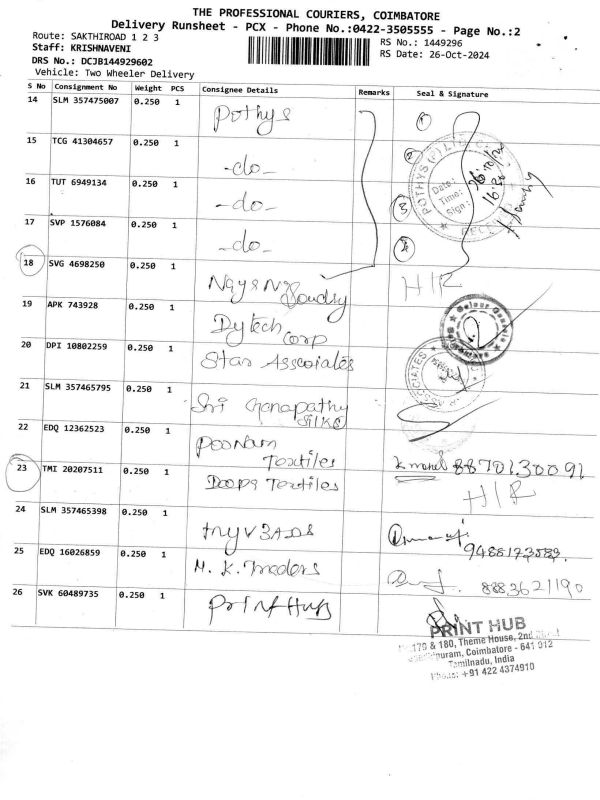 THE PROFESSIONAL COURIERS, COIMBATORE
Delivery Runsheet - PCX - Phone No.:0422-3505555 - Page No.:2
Route: SAKTHIROAD 1 2 3
RS No.: 1449296
Staff: KRISHNAVENI
RS Date: 26-Oct-2024
DRS No.: DCJB144929602
Vehicle: Two Wheeler Delivery
S No Consignment No Weight PCS Consignee Details Remarks Seal & Signature
14 SLM 357475007 0.250 1 Pothys 1
15 TCG 41304657 0.250 1 -do- 2
POTHYS (P) LTD
Date: 26/10/24
Time: 16:30
Sign:
RECEIVED
16 TUT 6949134 0.250 1 -do- 3
17 SVP 1576084 0.250 1 -do- 4
18 SVG 4698250 0.250 1 H/R
19 APK 743928 0.250 1 Dytech Corp
20 DPI 10802259 0.250 1 Star Asscoiates
ASSOCIATES
21 SLM 357465795 0.250 1 Sri Ganapathy Silks
22 EDQ 12362523 0.250 1 Poonam Textiles 8870130091
23 TMI 20207511 0.250 1 Textiles H/R
24 SLM 357465398 0.250 1
25 EDQ 16026859 0.250 1 M. K. Traders 8883621190
26 SVK 60489735 0.250 1 Print Hub
PRINT HUB
179 & 180, Theme House, 2nd
puram, Coimbatore - 641 012
Tamilnadu, India
Phone: +91 422 4374910